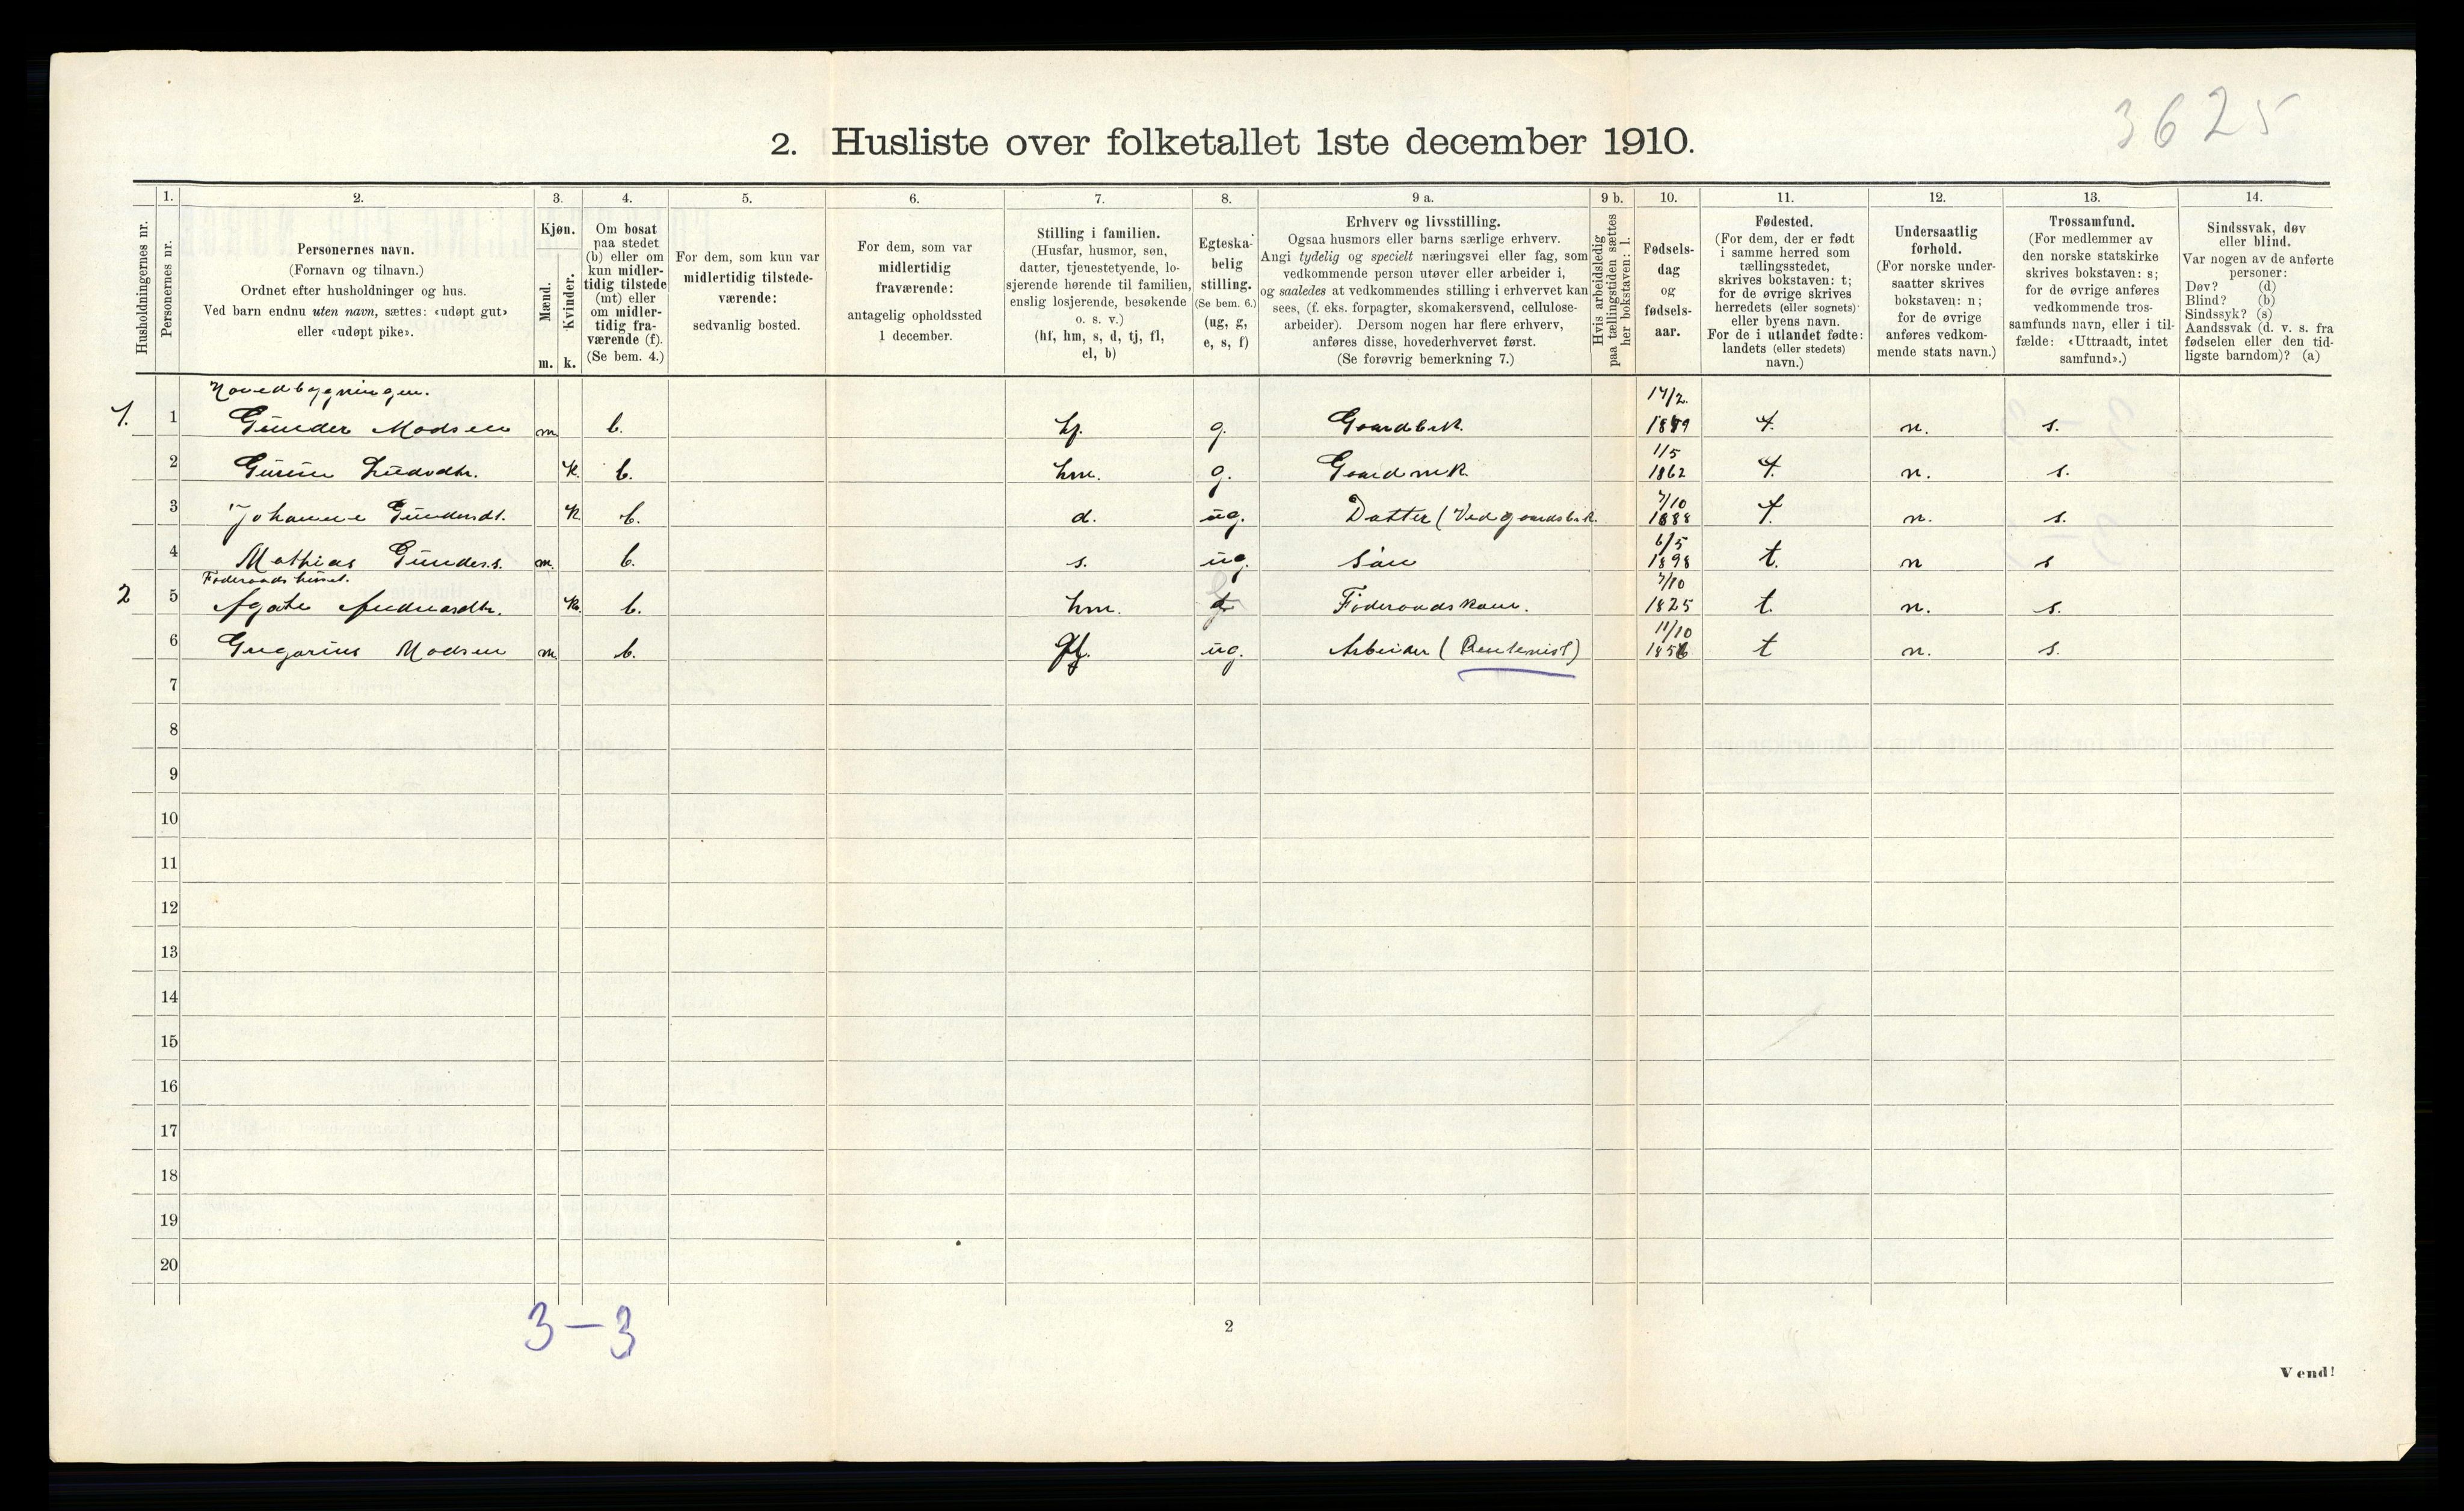 3625
2. Husliste over folketallet 1ste december 1910.
Husholdningernes nr.
1. Personernes nr.
2. Personernes navn. (Fornavn og tilnavn.) Ordnet efter husholdninger og hus. Ved barn endnu uten navn, sættes: «udøpt gut» eller «udøpt pike».
3. Kjøn. Mænd. m. Kvinder. k.
4. Om bosat paa stedet (b) eller om kun midlertidig tilstede (mt) eller om midlertidig fraværende (f). (Se bem. 4.)
5. For dem, som kun var midlertidig tilstedeværende: sedvanlig bosted.
6. For dem, som var midlertidig fraværende: antagelig opholdssted 1 december.
7. Stilling i familien. (Husfar, husmor, søn, datter, tjenestetyende, losjerende hørende til familien, enslig losjerende, besøkende o. s. v.) (hf, hm, s, d, tj, fl, el, b)
8. Egteskabelig stilling. (Se bem. 6.) (ug, g, e, s, f)
9 a. Erhverv og livsstilling. Ogsaa husmors eller barns særlige erhverv. Angi tydelig og specielt næringsvei eller fag, som vedkommende person utøver eller arbeider i, og saaledes at vedkommendes stilling i erhvervet kan sees, (f. eks. forpagter, skomakersvend, cellulosearbeider). Dersom nogen har flere erhverv, anføres disse, hovederhvervet først. (Se forøvrig bemerkning 7.)
9 b. Hvis arbeidsledig paa tællingstiden sættes her bokstaven: l.
10. Fødselsdag og fødselsaar.
11. Fødested. (For dem, der er født i samme herred som tællingsstedet, skrives bokstaven: t; for de øvrige skrives herredets (eller sognets) eller byens navn. For de i utlandet fødte: landets (eller stedets) navn.)
12. Undersaatlig forhold. (For norske undersaatter skrives bokstaven: n; for de øvrige anføres vedkommende stats navn.)
13. Trossamfund. (For medlemmer av den norske statskirke skrives bokstaven: s; for de øvrige anføres vedkommende trossamfunds navn, eller i tilfælde: «Uttraadt, intet samfund».)
14. Sindssvak, døv eller blind. Var nogen av de anførte personer: Døv? (d) Blind? (b) Sindssyk? (s) Aandssvak (d. v. s. fra fødselen eller den tidligste barndom)? (a)
Hovedbygningen.
1. 1 Gunder Madsen m. b. hf. g. Gaardbrk. 17/2. t. n. s.
2 k. b. hm. g. 1/5 1862 t. n. s.
3 Johanne Gundersdt. k. b. d. ug. Datter (Ved gaardsbrk. 7/10 1888 t. n. s.
4 Mathias Gunders. m. b. s. ug. Søn 6/5 1898 t. n s
Føderaadshuset.
2 5 Agate k. b. hm. Føderaadskone. 7/10 1825 t. n. s.
6 Gregorius Madsen m. b. ug. Arbeider (Rentenist) 11/10 t n. s.
7
8
9
10
11
12
13
14
15
16
17
18
19
20
3-3
2
Vend!